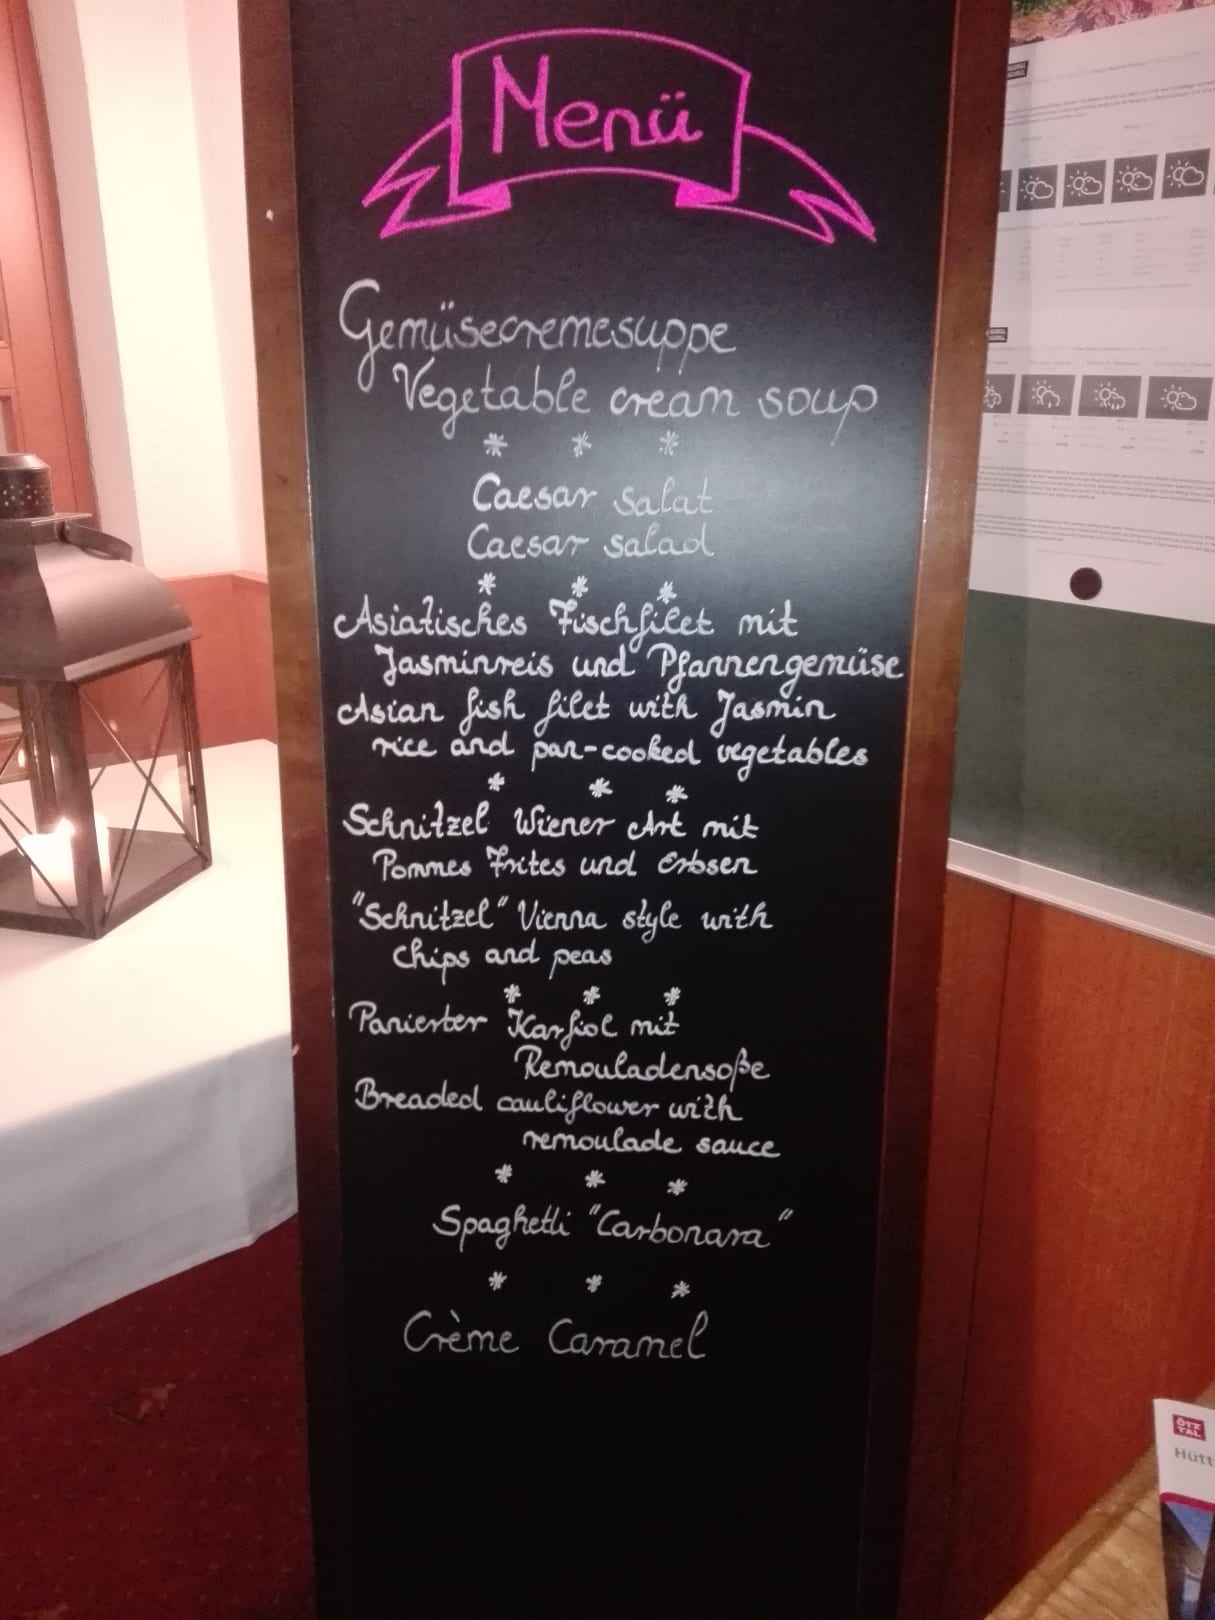 Menü
Gemüsecremesuppe
Vegetable cream soup
* * *
Caesar salat
Caesar salad
* * *
Asiatisches Fischfilet mit
Jasminreis und Pfannengemüse
Asian fish filet with Jasmin
rice and pan-cooked vegetables
* * *
Schnitzel Wiener Art mit
Pommes Frites und Erbsen
"Schnitzel" Vienna style with
chips and peas
* * *
Panierter Karfiol mit
Remouladensoße
Breaded cauliflower with
remoulade sauce
* * *
Spaghetti "Carbonara"
* * *
Crème Caramel
ÖTZ
TAL
Hütt